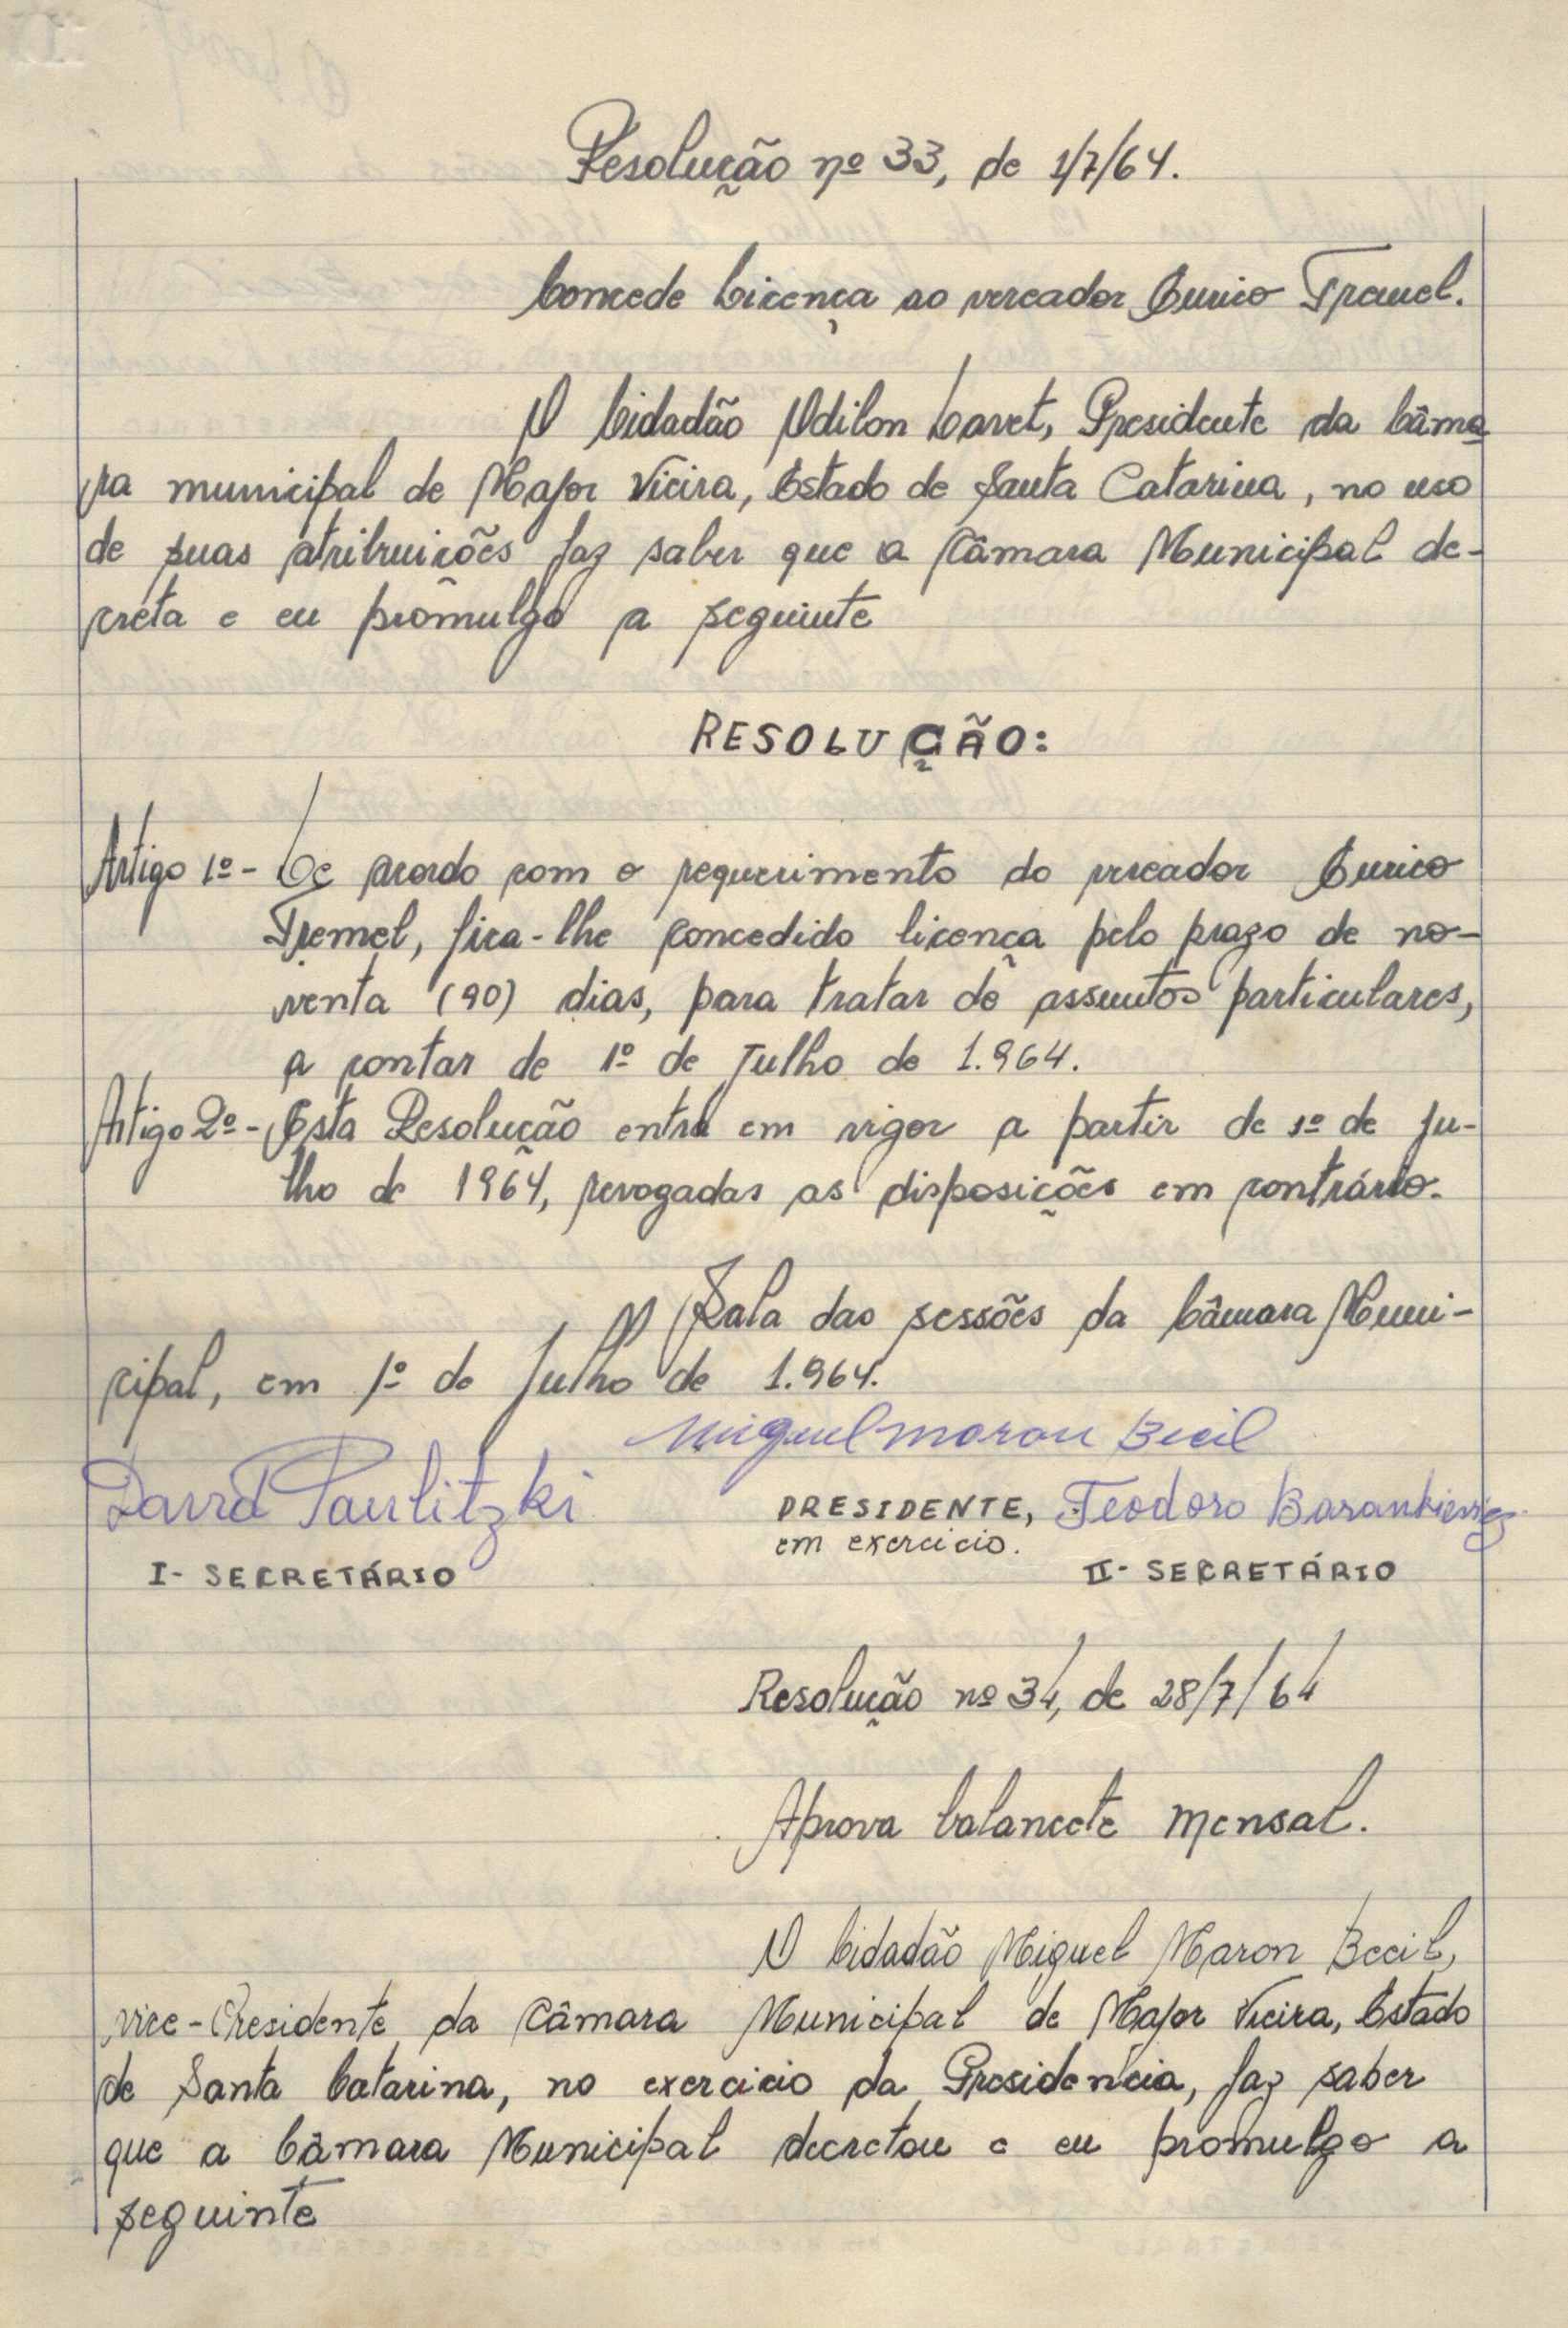 Resolução nº 33, de 1/7/64.
Concede Licença ao vereador Eurico Tremel.
O Cidadão Odilon Davet, Presidente da Câma
ra municipal de Major Vieira, Estado de Santa Catarina, no uso
de suas atribuições faz saber que a Câmara Municipal de-
creta e eu promulgo a seguinte
RESOLUÇÃO:
Artigo 1º- De acordo com o requerimento do vereador Eurico
Tremel, fica-lhe concedido licença pelo prazo de no-
venta (90) dias, para tratar de assuntos particulares,
a contar de 1º de Julho de 1.964.
Artigo 2º- Esta Resolução entra em vigor a partir de 1º de Ju-
lho de 1964, revogadas as disposições em contrário.
Sala das sessões da Câmara Muni-
cipal, em 1º de Julho de 1.964.
Miguel Maron Becil
David Paulitzki
PRESIDENTE, Teodoro Barankievicz
em exercicio.
I- SECRETÁRIO
II- SECRETÁRIO
Resolução nº 34, de 28/7/64
Aprova balancete mensal.
O Cidadão Miguel Maron Becil,
vice-Presidente da Câmara Municipal de Major Vieira, Estado
de Santa Catarina, no exercicio da Presidência, faz saber
que a Câmara Municipal decretou e eu promulgo a
seguinte